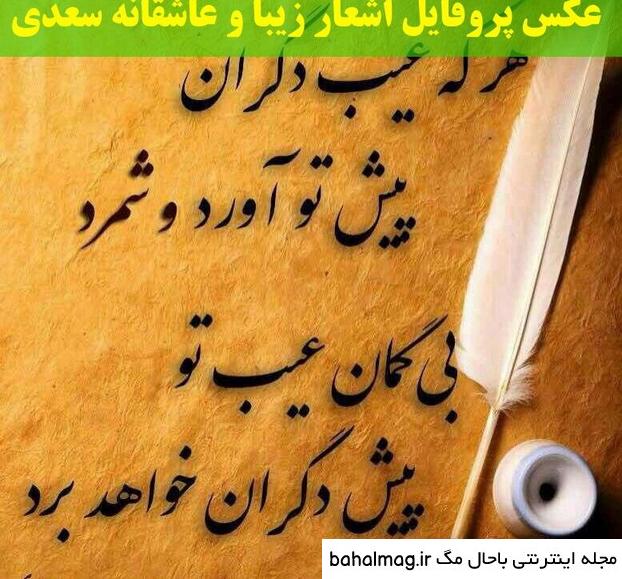 عکس پروفایل اشعار زیبا و عاشقانه سعدی
هر که عیب دگران
پیش تو آورد و شمرد
بی گمان عیب تو
پیش دگران خواهد برد
مجله اینترنتی باحال مگ bahalmag.ir